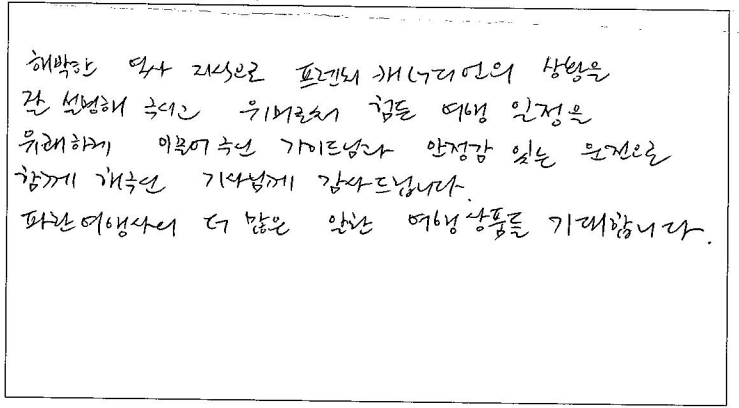 해박한 역사 지식으로 프렌치 캐너디언의 상황을
잘 설명해 주시고 유머로써 힘든 여행 일정을
유쾌하게 이끌어주신 가이드님과 안정감 있는 운전으로
함께 해주신 기사님께 감사드립니다.
파란여행사의 더 많은 알찬 여행상품을 기대합니다.